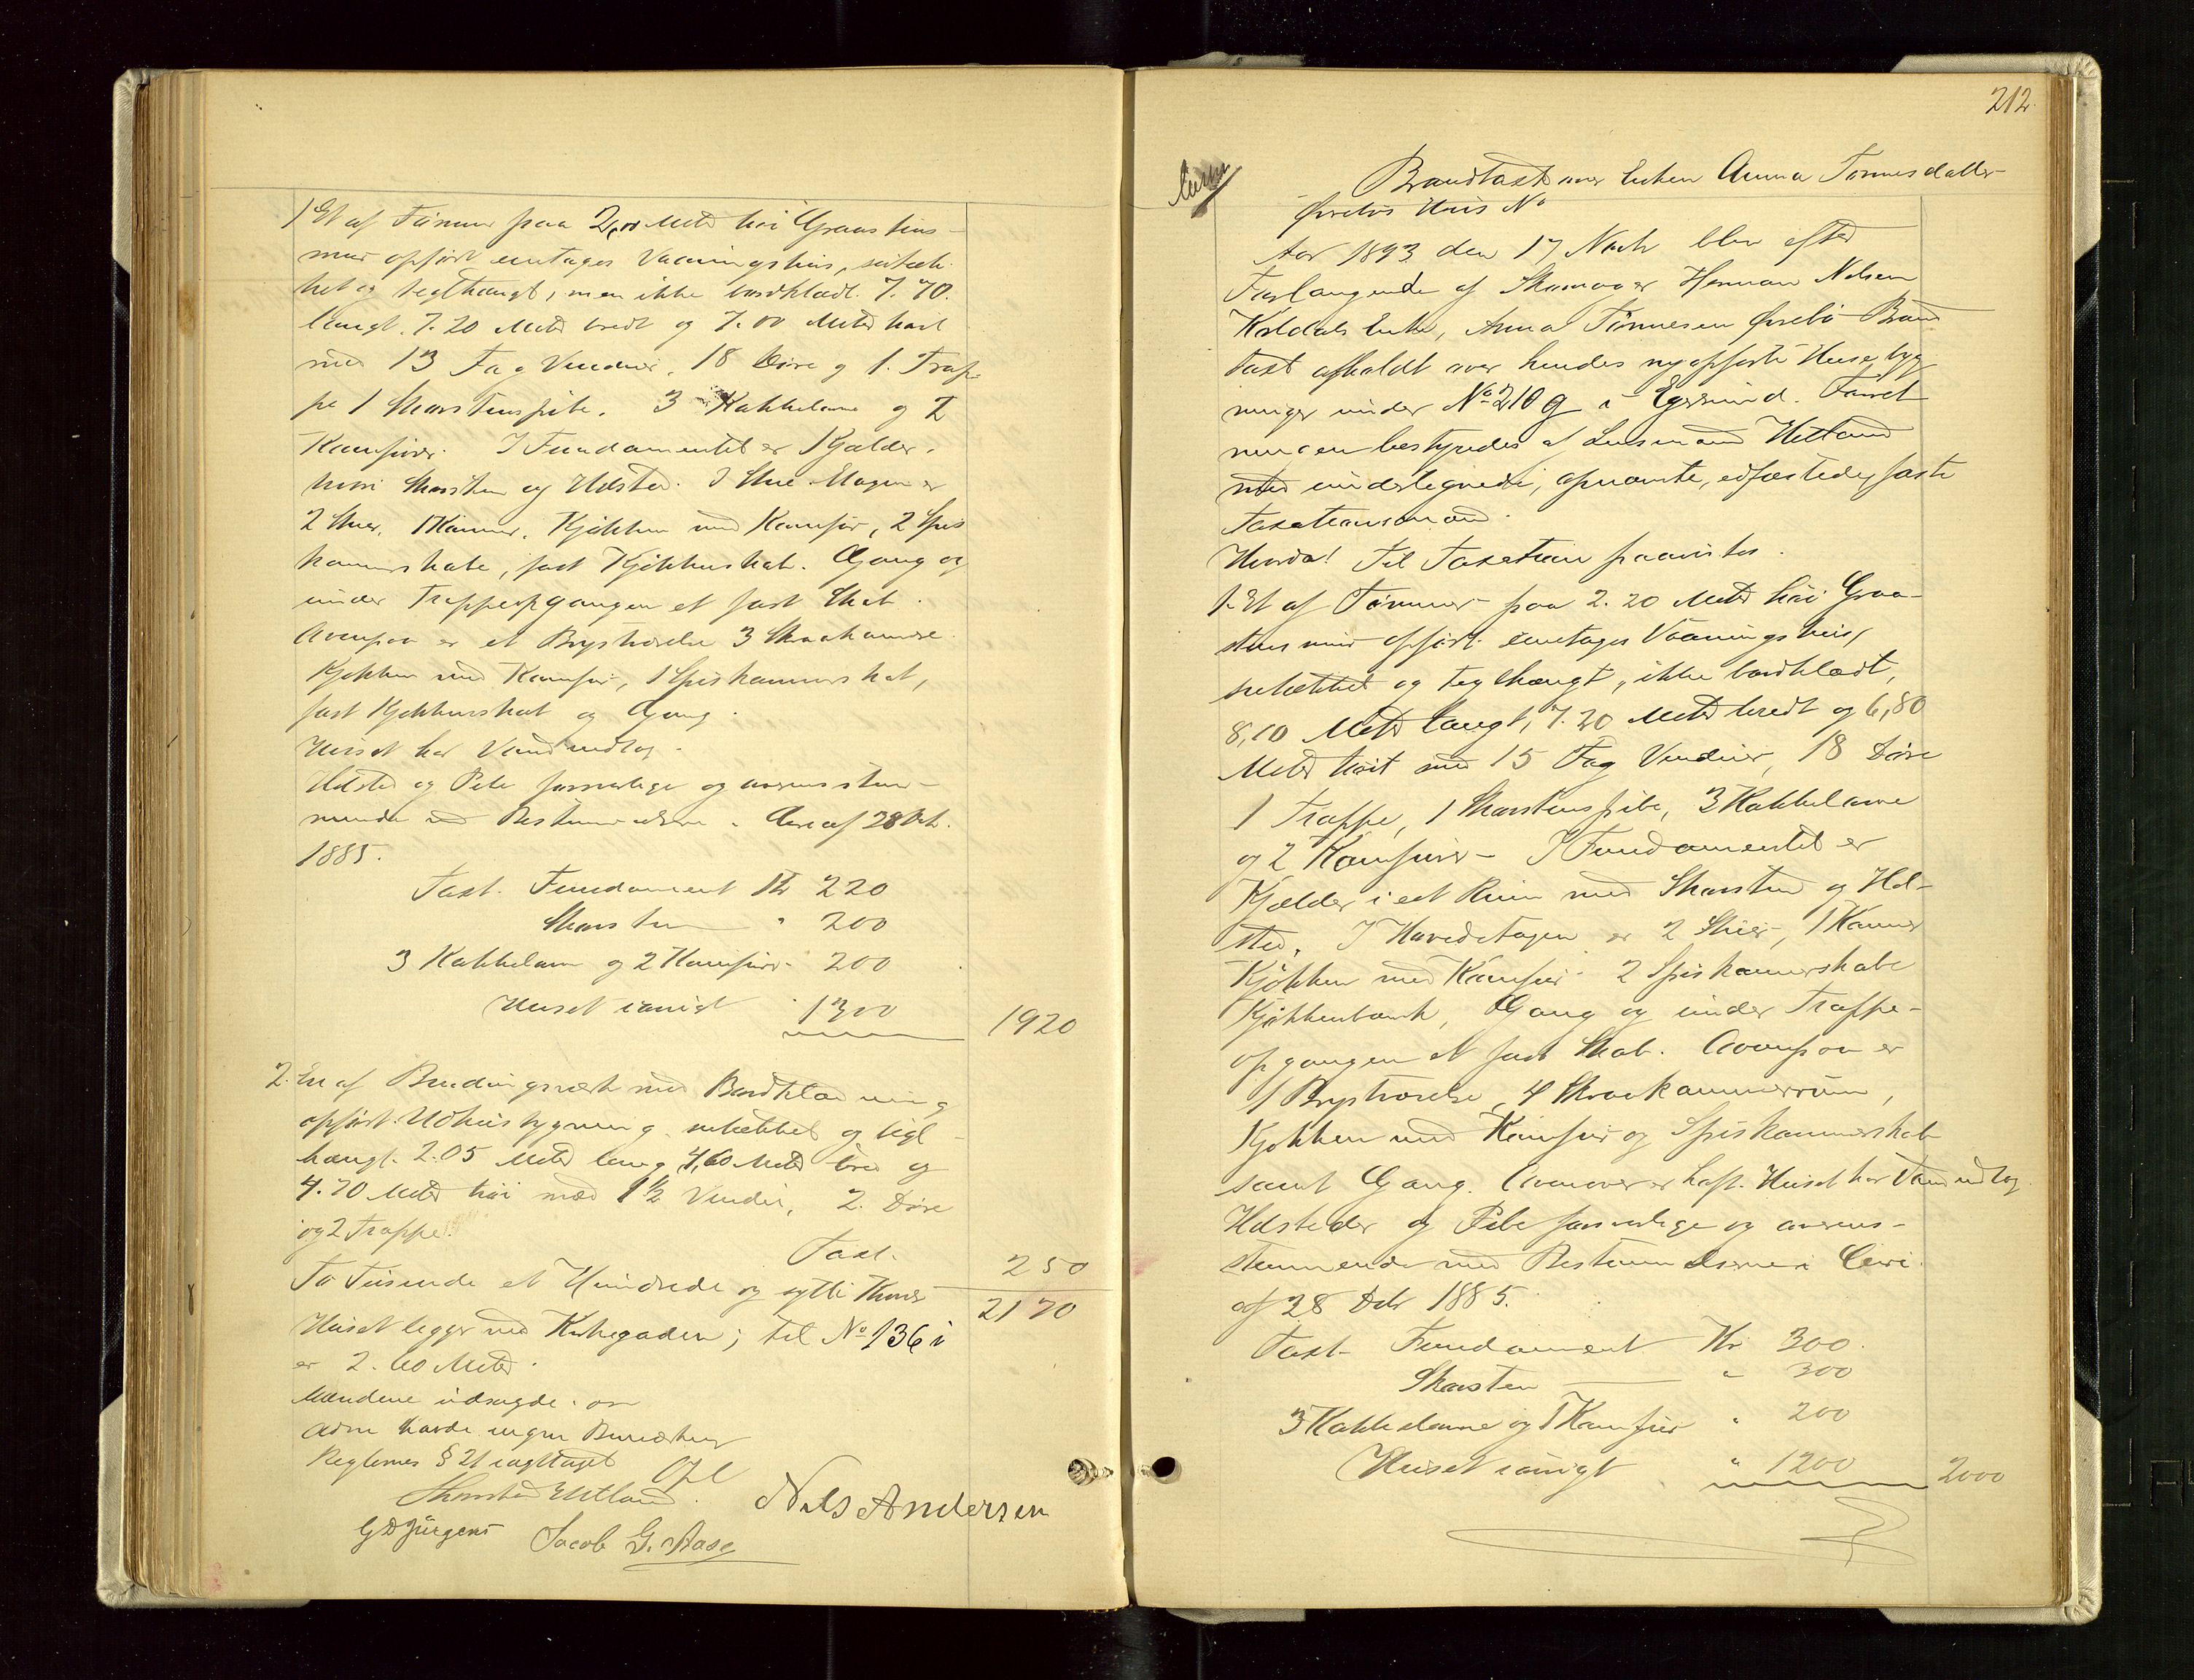 1 Et af Tømmer paa 2,00 Meter høi Graastens-
mur opført eenetages Vaaningshus, sutæk-
ket og teglhængt, men ikke bordklædt. 7.70.
langt. 7.20 Meter bredt og 7.00 Meter høit
med 13 Fag Vinduer, 18 Døre og 1. Trap-
pe 1 Skorstenspibe. 3 Kakkelovne og 2
Komfurer. I Fundamentet er Kjælder.
hvori Skorsten og Ildsted. I Stue Etagen er
2 Stuer, 1 Kammer. Kjøkken med Komfur, 2 Spis
kammerskabe, fast Kjøkkenskab. Gang og
under Trappeopgangen et fast Skab.
Ovenpaa er et Brystværelse 3 Skraakamre.
Kjøkken med Komfur, 1 Spiskammerskab,
fast Kjøkkenskab og Gang.
Huset har Vandindlæg.
Ildsted og Pibe forsvarlige og overensstem-
mende med Bestemmelserne i Circ af 28 Debr.
1885.
Taxt. Fundament Kr 220
Skorsten " 200
3 Kakkelovne og 2 Komfurer " 200
Huset iøvrigt " 1300 1920
2. En af Bindingsværk med Bordklædning
opført Udhusbygning sutækket og tegl-
hængt. 2.05 Meter lang 4,60 Meter bred og
4.70 Meter høi med 1 1/2 Vindu, 2. Døre
og 2 Trapper.
Taxt. 250
To Tusinde et Hundrede og sytti Kroner 2170
Huset ligger ved Kirkegaden; til No 136 i
er 2.60 Meter.
Mændene udsagde. om
Reglernes § 21 iagttaget
Thorsten Hetland.
Nils Andersen
G D Jürgens Jacob G. Aase
212
Brandtaxt over Enken Anna Tønnesdatter
Øvrebøs Hus No
Aar 1893 den 17 Novbr blev efter
Forlangende af Skomager Herman Nilsen
Koldals Enke, Anna Tønnesen Øvrebø Brand
taxt afholdt over hendes nyopførte Husebyg
ninger under No 210 g i Egersund. Forret
ningen bestyredes af Lensmand Hetland
med undertegnede, opnævnte, edfæstede, faste
Taxationsmænd.
Hvorda! Til Taxation paavistes.
1. Et af Tømmer paa 2.20 Meter høi Graa-
stensmur opført eenetages Vaaningshus,
sutækket og teglhængt, ikke bordklædt,
8,10 Meter langt, 7.20 Meter bredt og 6,80
Meter høit med 15 Fag Vinduer, 18 Døre
1 Trappe, 1 Skorstenspibe, 3 Kakkelovne
og 2 Komfurer - I Fundamentet er
Kjælder i eet Rum med Skorsten og Ild-
sted. I Hovedetagen er 2 Stuer, 1 Kammer
Kjøkken med Komfur. 2 Spiskammerskabe
Kjøkkenbænk, Gang og under Trappe-
opgangen et fast Skab. Ovenpaa er
1 Brystværelse, 4 Skraakammerrum,
Kjøkken med Komfur og Spiskammerskab
samt Gang. Ovenover er Loft. Huset har Vandindlæg.
Ildsteder og Pibe forsvarlige og overens-
stemmende med Bestemmelserne i Circ.
af 28 Debr 1885.
Taxt Fundament Kr 300.
Skorsten " 300
3 Kakkelovne og 1 Komfur " 200
Huset iøvrigt " 1200 2000